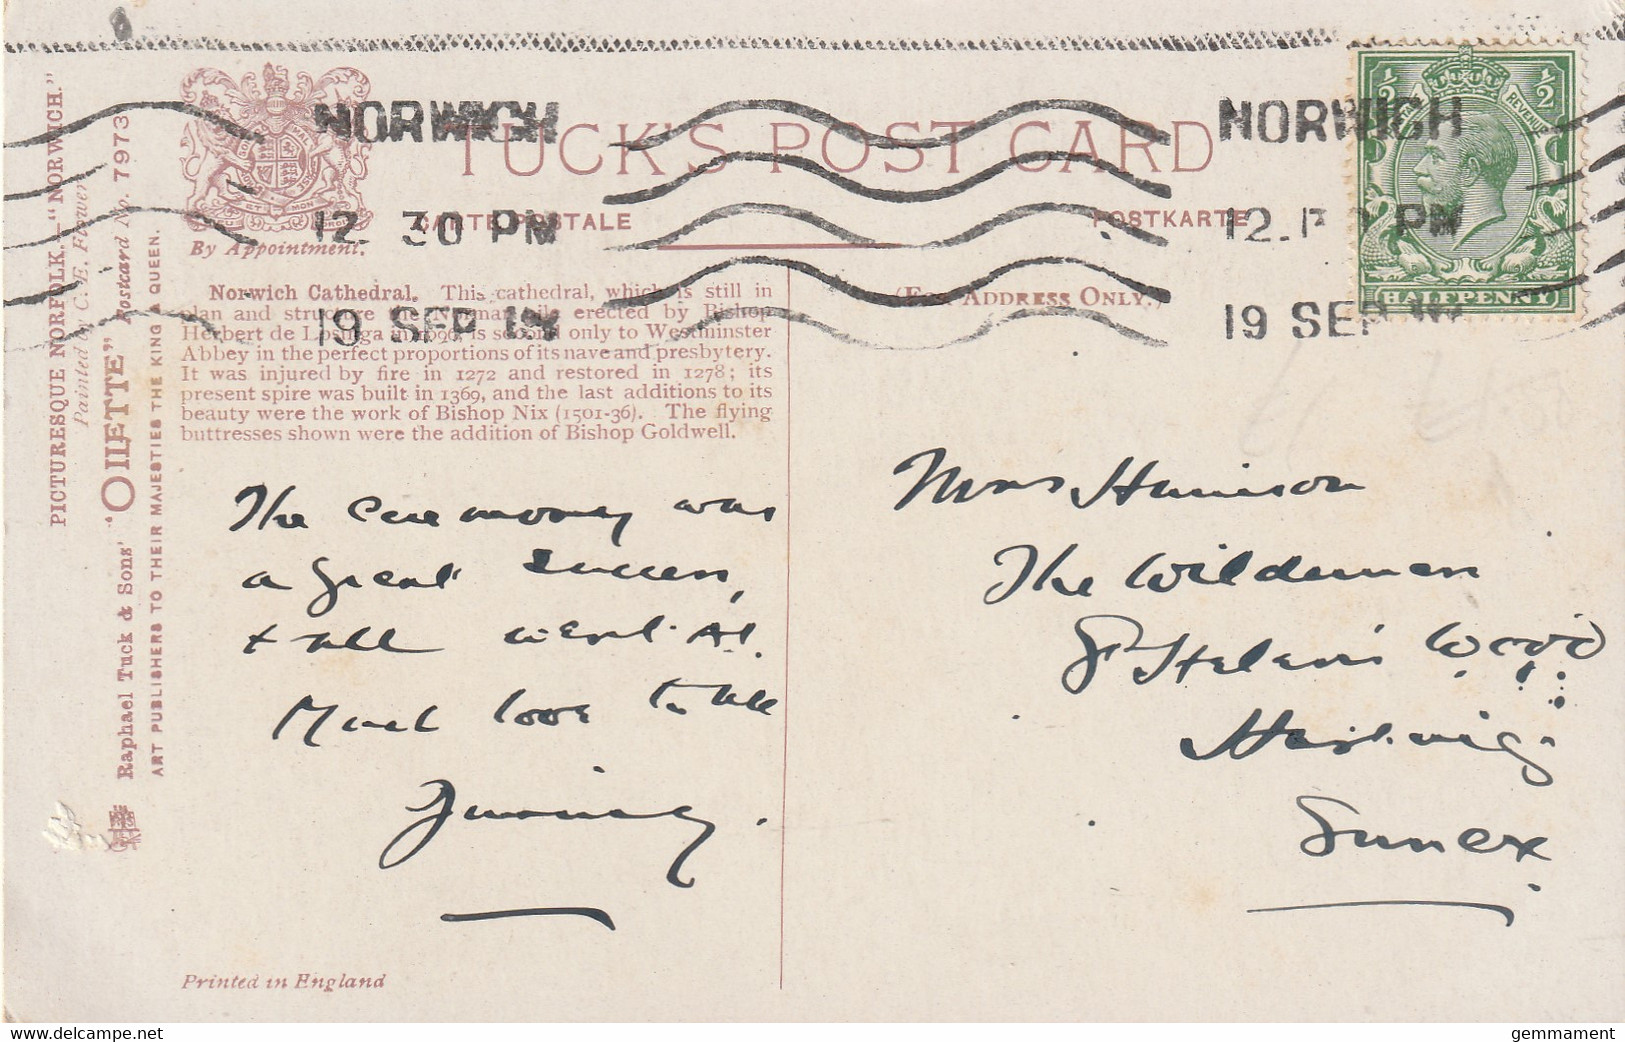 PICTURESQUE NORFOLK.—"NORWICH."
Painted by C. E. Flower
Raphael Tuck & Sons' "OILETTE" Postcard No. 7973
ART PUBLISHERS TO THEIR MAJESTIES THE KING & QUEEN.
By Appointment.
TUCK'S POST CARD
CARTE POSTALE
POSTKARTE
(For Address Only.)
NORWICH
12. 30 PM
19 SEP
NORWICH
12. PM
19 SEP
½ ½
REVENUE
HALFPENNY
Norwich Cathedral. This cathedral, which is still in
plan and structure the Norman pile erected by Bishop
Herbert de Losinga in 1096, is second only to Westminster
Abbey in the perfect proportions of its nave and presbytery.
It was injured by fire in 1272 and restored in 1278; its
present spire was built in 1369, and the last additions to its
beauty were the work of Bishop Nix (1501-36). The flying
buttresses shown were the addition of Bishop Goldwell.
The ceremoney was
a great success,
& all went A1.
Much love to all
Mrs Harrison
The Wilderness
St Helen's Wood
Hastings
Sussex
Printed in England
gemmament